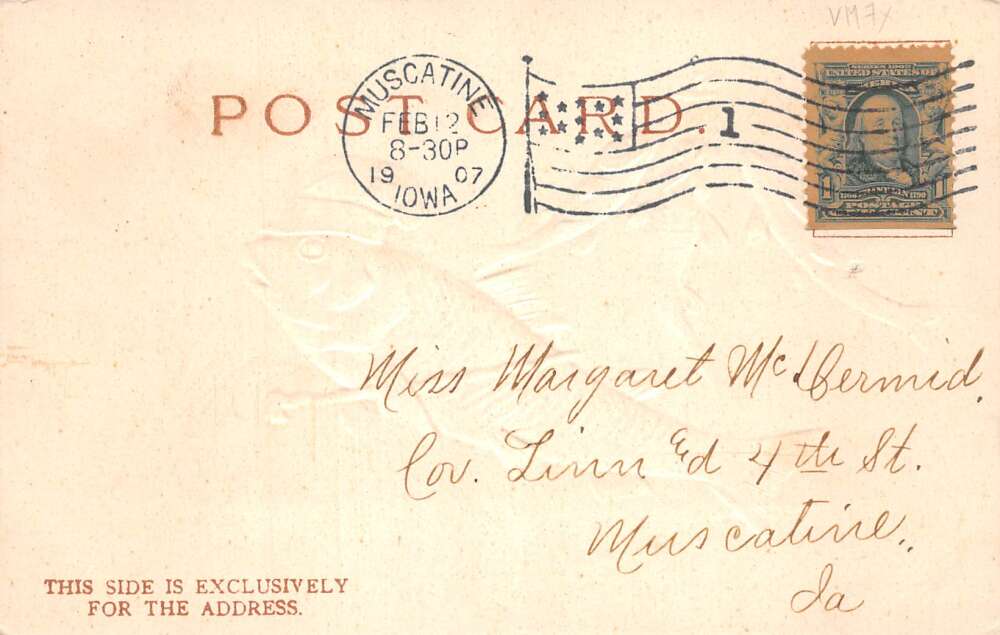 VM7x
POST CARD.
MUSCATINE
FEB 12
8-30P
1907
IOWA
1
SERIES 1902
UNITED STATES OF
1 FRANKLIN 1
POSTAGE
Miss Margaret McDermid,
Cor. Linn &d 4th St.
Muscatine,
Ia
THIS SIDE IS EXCLUSIVELY
FOR THE ADDRESS.